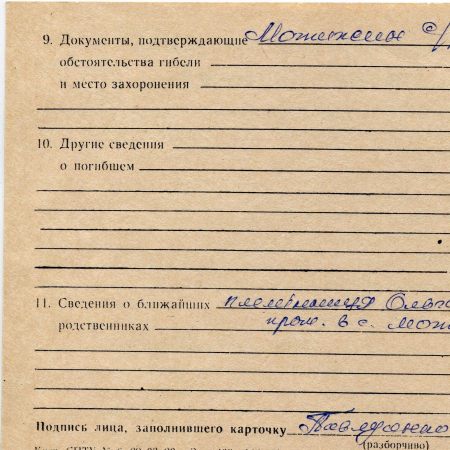 9. Документы, подтверждающие
обстоятельства гибели
и место захоронения
10. Другие сведения
о погибшем
11. Сведения о ближайших племянница
родственниках прож. в с.
Подпись лица, заполнившего карточку
(разборчиво)